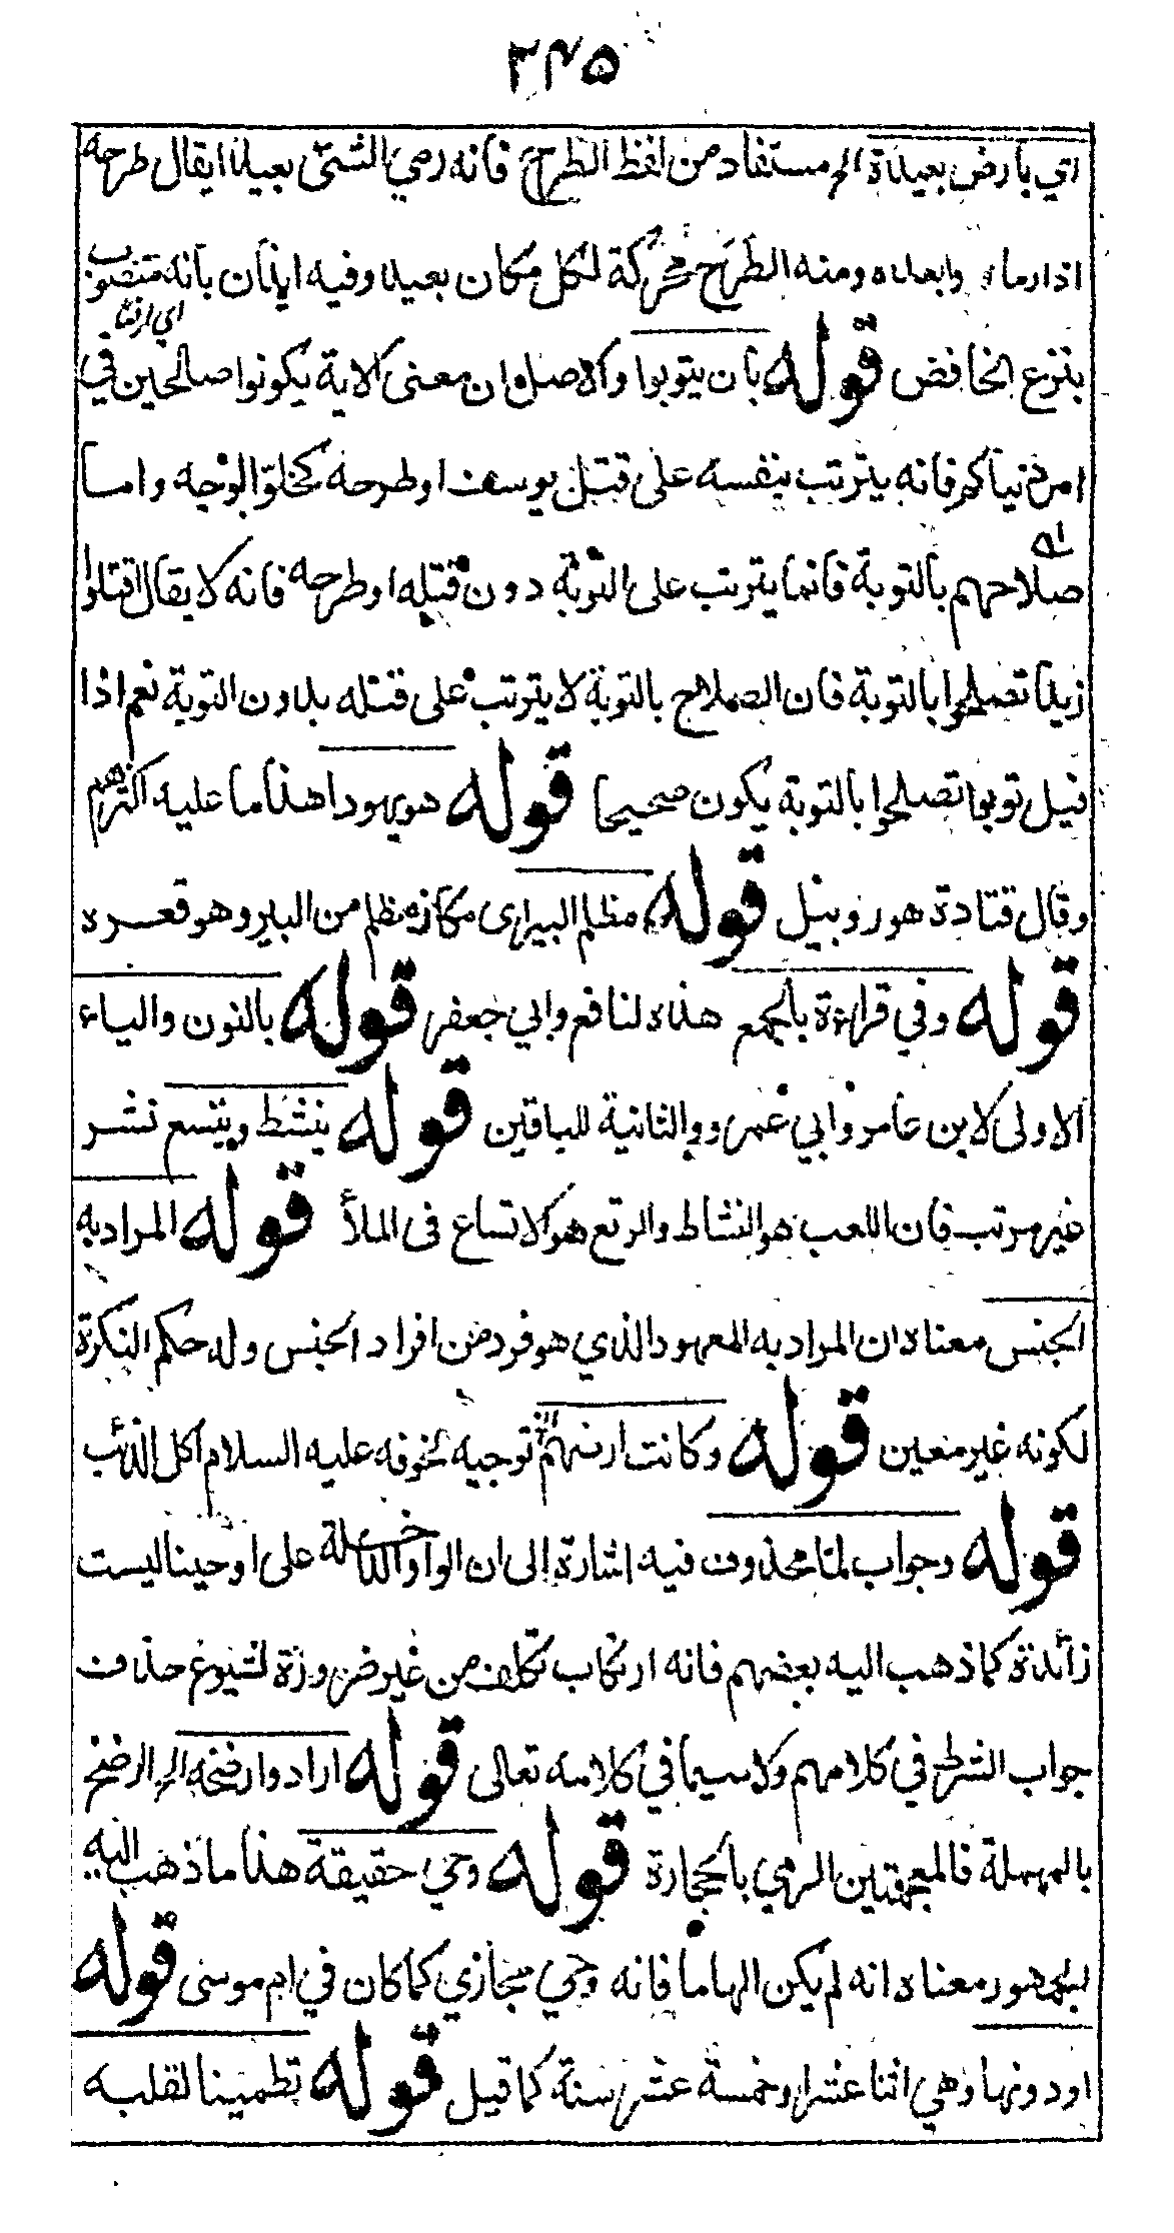 ٣٤٥
اي بأرض بعيدة الخ مستفاد من لفظ الطرح فانه رمي الشئ بعيدا يقال طرحه
اذا رماه وابعده ومنه الطرح محركة لكل مكان بعيد وفيه ايذان بانه منصوب
بنزع الخافض قوله بان يتوبوا والاصل ان معنى الاية يكونوا صالحين في
اي ارضا
امر دنياكم فانه يترتب بنفسه على قتل يوسف او طرحه كخلو الوجه واما
صلاحهم بالتوبة فانما يترتب على التوبة دون قتله او طرحه فانه لا يقال اقتلوا
زيدا تصلحوا بالتوبة فان الصلاح بالتوبة لا يترتب على قتله بدون التوبة نعم اذا
قيل توبوا تصلحوا بالتوبة يكون صحيحا قوله هو يهودا هذا ما عليه اكثرهم
وقال قتادة هو روبيل قوله مظلم البيراى مكان مظلم من البير وهو قعره
قوله وفي قراءة بالجمع هذه لنافع وابي جعفر قوله بالنون والياء
الاولى لابن عامر وابي عمرو والثانية للباقين قوله ينشط ويتسع نشر
غير مرتب فان اللعب هو النشاط والرتع هو الاتساع فى الملأ قوله المراد به
الجنس معناه ان المراد به المعهود الذي هو فرد من افراد الجنس وله حكم النكرة
لكونه غير معين قوله وكانت ارضهم الخ توجيه لخوفه عليه السلام اكل الذئب
قوله وجواب لما محذوف فيه اشارة الى ان الواو الداخلة على اوحينا ليست
زائدة كما ذهب اليه بعضهم فانه ارتكاب تكلف من غير ضرورة لشيوع حذف
جواب الشرط في كلامهم ولا سيما في كلامه تعالى قوله ارادوا رضخه الخ الرضخ
بالمهملة فالمعجمتين الرمي بالحجارة قوله وحي حقيقة هذا ما ذهب اليه
الجمهور معناه انه لم يكن الهاما فانه وحي مجازي كما كان في ام موسى قوله
او دونها وهي اثنا عشر او خمسة عشر سنة كما قيل قوله تطمينا لقلبه